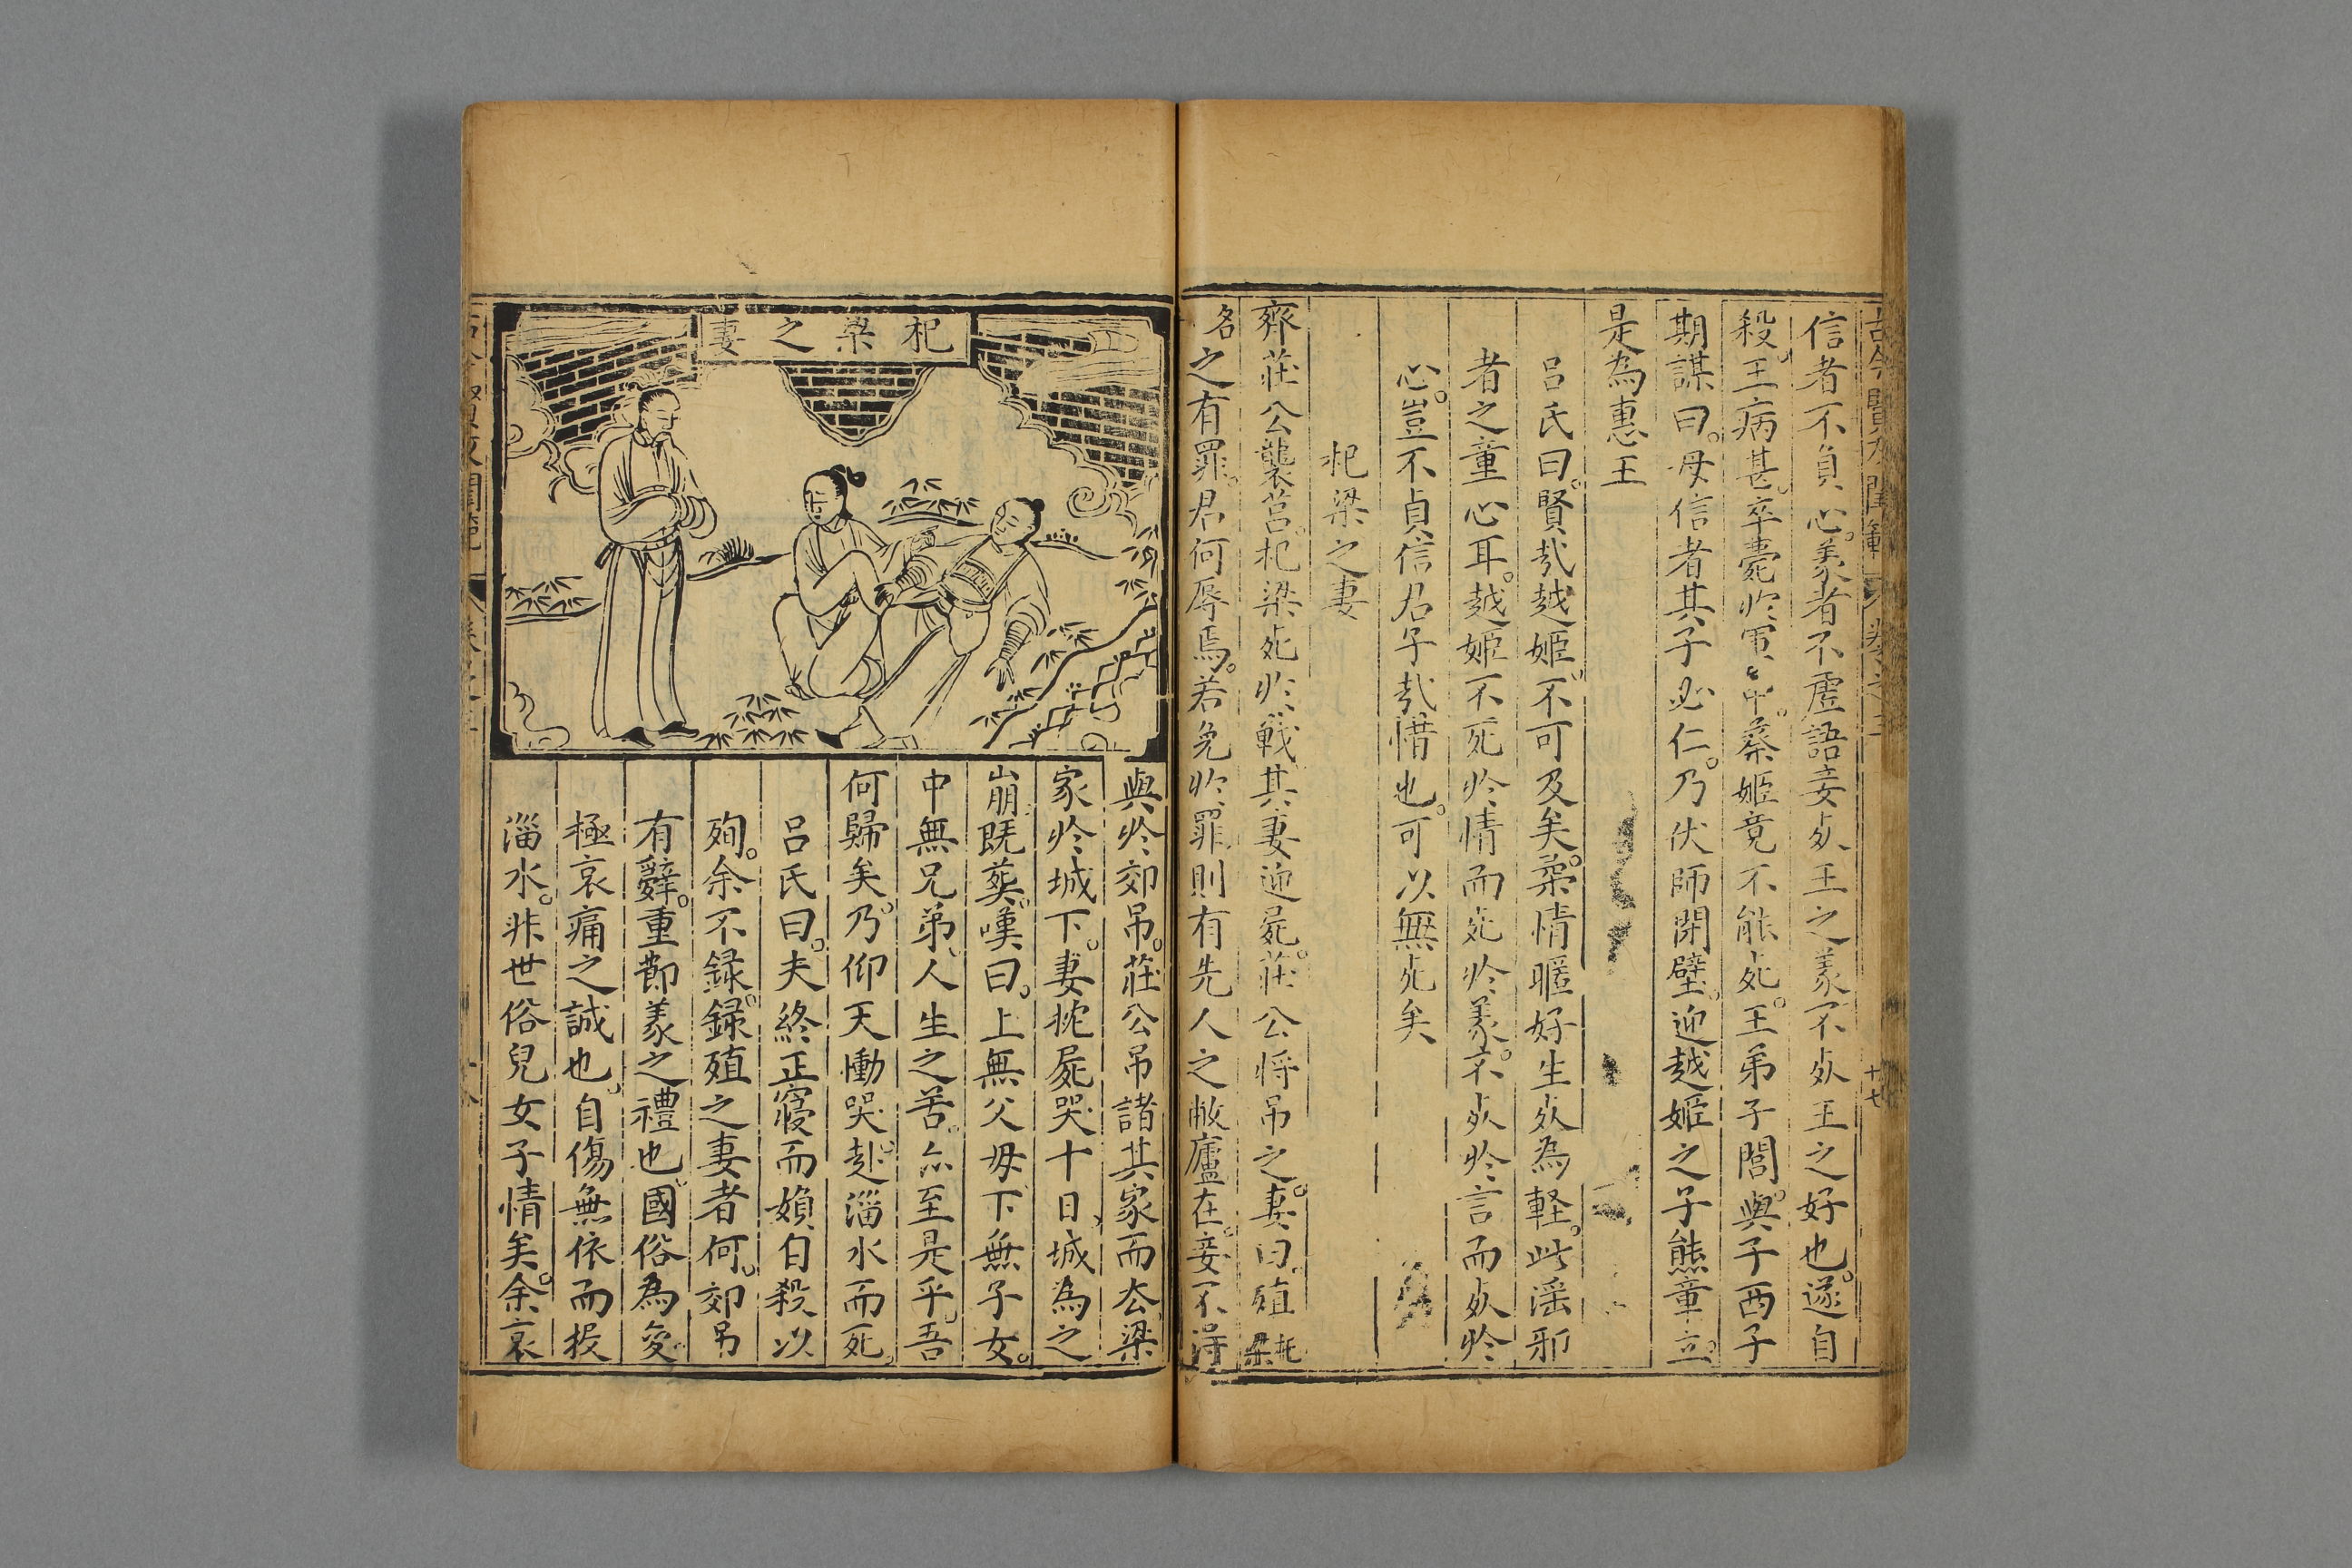 信者不負心義者不虛語妾死王之義不死王之好也遂自
殺王病甚卒薨於軍中蔡姬竟不能死王弟子閭與子西子
期謀曰母信者其子必仁乃伏師閉壁迎越姬之子熊章立
是為惠王
呂氏曰賢哉越姬不可及矣柔情暱好生死為輕此滛邪
者之童心耳越姬不死於情而死於義不死於言而死於
心豈不貞信君子哉惜也可以無死矣
杞梁之妻
齊莊公襲莒杞梁死於戰其妻迎屍莊公将吊之妻曰殖杞梁
名之有罪君何辱焉若免於罪則有先人之敝廬在妾不得
杞梁之妻
與於郊吊莊公吊諸其家而去梁
家於城下妻枕屍哭十日城為之
崩既葬嘆曰上無父母下無子女
中無兄弟人生之苦亦至是乎吾
何歸矣乃仰天慟哭赴淄水而死
呂氏曰夫終正寢而婦自殺以
殉余不録録殖之妻者何郊吊
有辭重節義之禮也國俗為變
極哀痛之誠也自傷無依而投
淄水非世俗兒女子情矣余哀